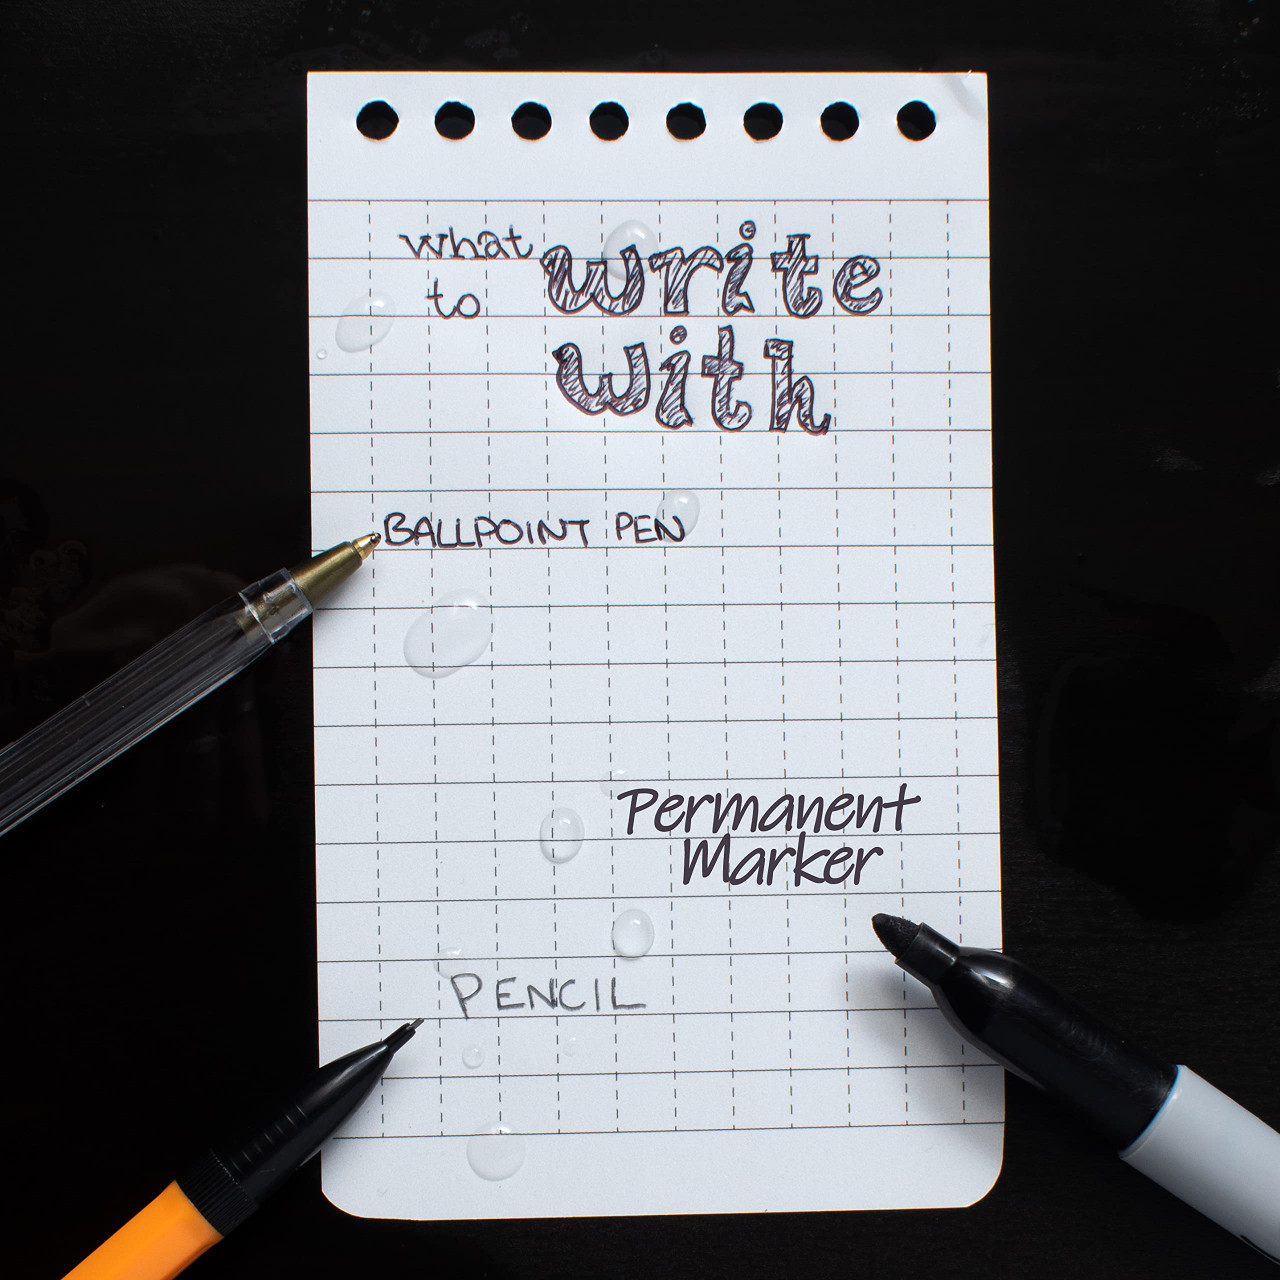 what write
to with
BALLPOINT PEN
Permanent
Marker
PENCIL